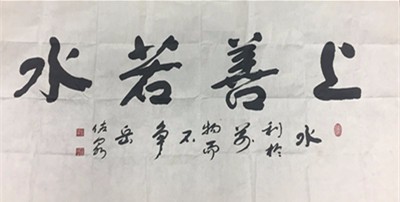 上善若水
水利於萬物而不争
岳